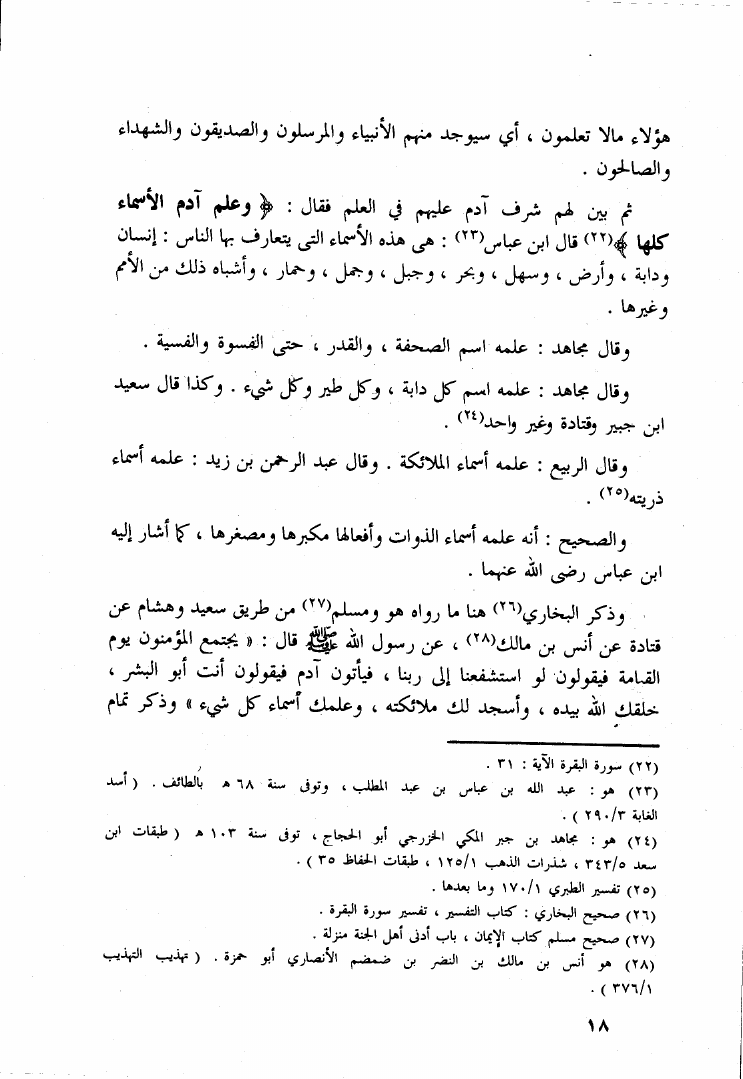 هؤلاء مالا تعلمون ، أي سيوجد منهم الأنبياء والمرسلون والصديقون والشهداء
والصالحون .
ثم بين لهم شرف آدم عليهم في العلم فقال : ﴿ وعلم آدم الأسماء
كلها ﴾(٢٢) قال ابن عباس(٢٣) : هى هذه الأسماء التى يتعارف بها الناس : إنسان
ودابة ، وأرض ، وسهل ، وبحر ، وجبل ، وجمل ، وحمار ، وأشباه ذلك من الأمم
وغيرها .
وقال مجاهد : علمه اسم الصحفة ، والقدر ، حتى الفسوة والفسية .
وقال مجاهد : علمه اسم كل دابة ، وكل طير وكل شيء . وكذا قال سعيد
ابن جبير وقتادة وغير واحد(٢٤) .
وقال الربيع : علمه أسماء الملائكة . وقال عبد الرحمن بن زيد : علمه أسماء
ذريته(٢٥) .
والصحيح : أنه علمه أسماء الذوات وأفعالها مكبرها ومصغرها ، كما أشار إليه
ابن عباس رضى الله عنهما .
وذكر البخاري(٢٦) هنا ما رواه هو ومسلم(٢٧) من طريق سعيد وهشام عن
قتادة عن أنس بن مالك(٢٨) ، عن رسول الله ﷺ قال : « يجتمع المؤمنون يوم
القيامة فيقولون لو استشفعنا إلى ربنا ، فيأتون آدم فيقولون أنت أبو البشر ،
خلقك الله بيده ، وأسجد لك ملائكته ، وعلمك أسماء كل شيء » وذكر تمام
(٢٢) سورة البقرة الآية : ٣١ .
(٢٣) هو : عبد الله بن عباس بن عبد المطلب ، وتوفى سنة ٦٨ هـ بالطائف . ( أسد
الغابة ٢٩٠/٣ ) .
(٢٤) هو : مجاهد بن جبر المكي الخزرجي أبو الحجاج ، توفى سنة ١٠٣ هـ ( طبقات ابن
سعد ٣٤٣/٥ ، شذرات الذهب ١٢٥/١ ، طبقات الحفاظ ٣٥ ) .
(٢٥) تفسير الطبري ١٧٠/١ وما بعدها .
(٢٦) صحيح البخاري : كتاب التفسير ، تفسير سورة البقرة .
(٢٧) صحيح مسلم كتاب الإيمان ، باب أدنى أهل الجنة منزلة .
(٢٨) هو أنس بن مالك بن النضر بن ضمضم الأنصاري أبو حمزة . ( تهذيب التهذيب
٣٧٦/١ ) .
١٨